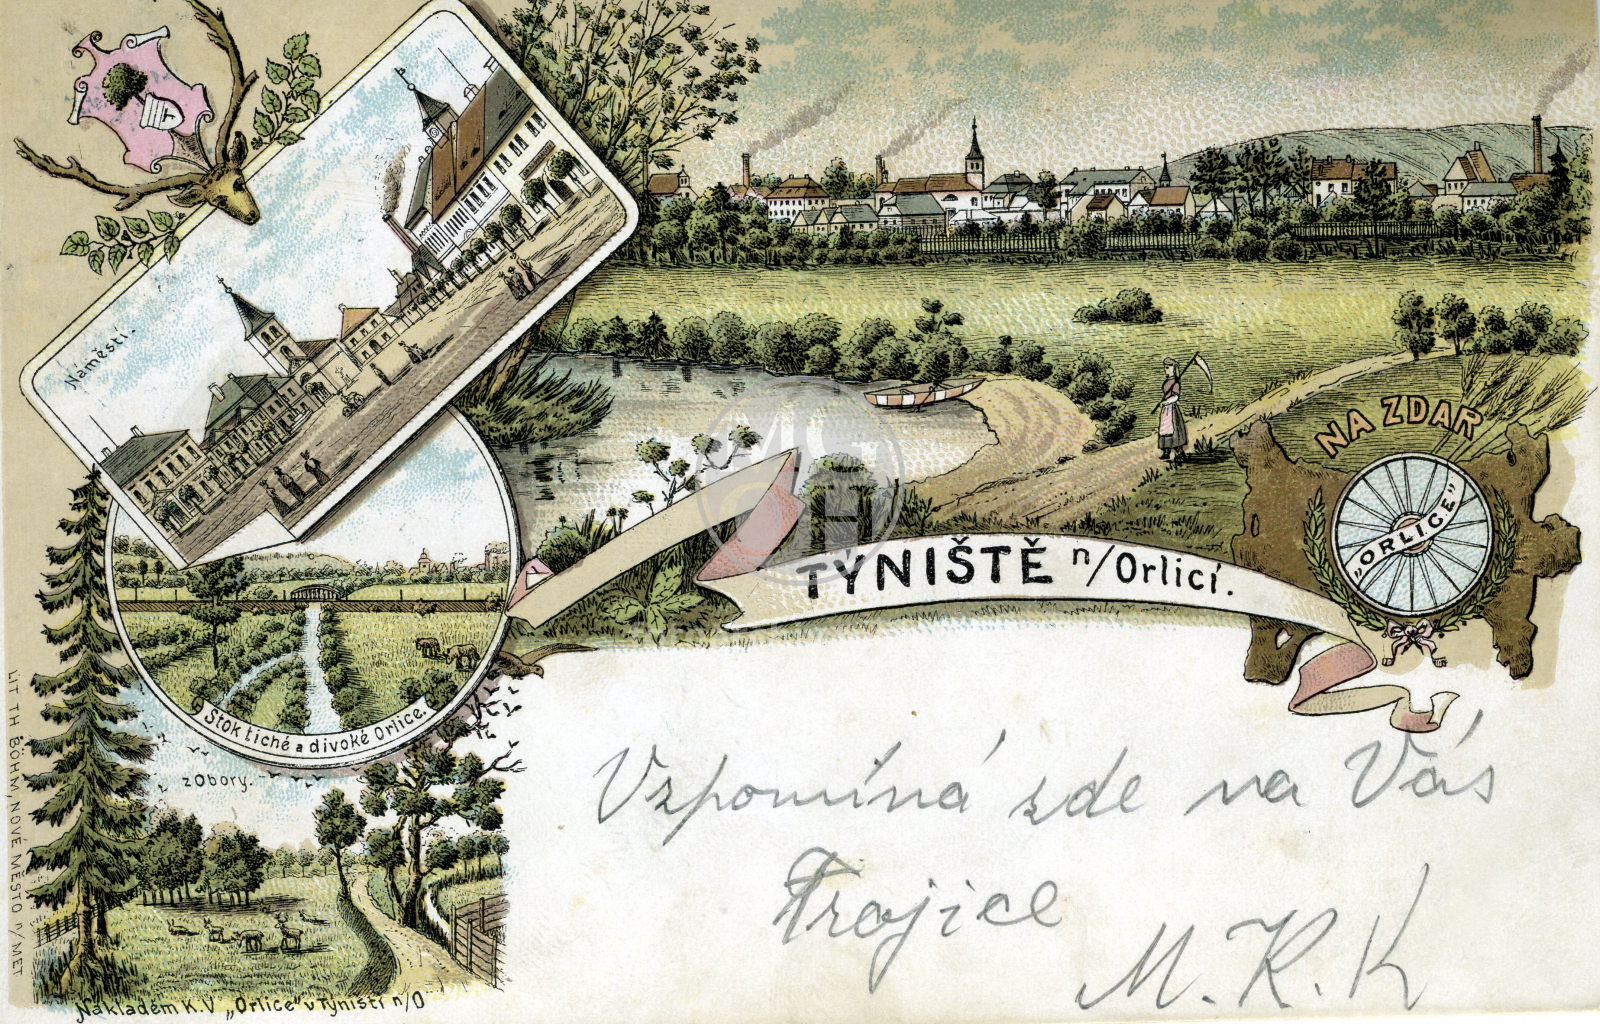 Náměstí.
NA ZDAR
„ORLICE"
TÝNIŠTĚ n/Orlicí.
Stok tiché a divoké Orlice.
z Obory.
LIT. TH. BÖHM, NOVÉ MĚSTO n/MET
Nákladem K.V. „Orlice" v Týništi n/O
Vzpomíná zde na Vás
Trojice
M. K. K
T
MH